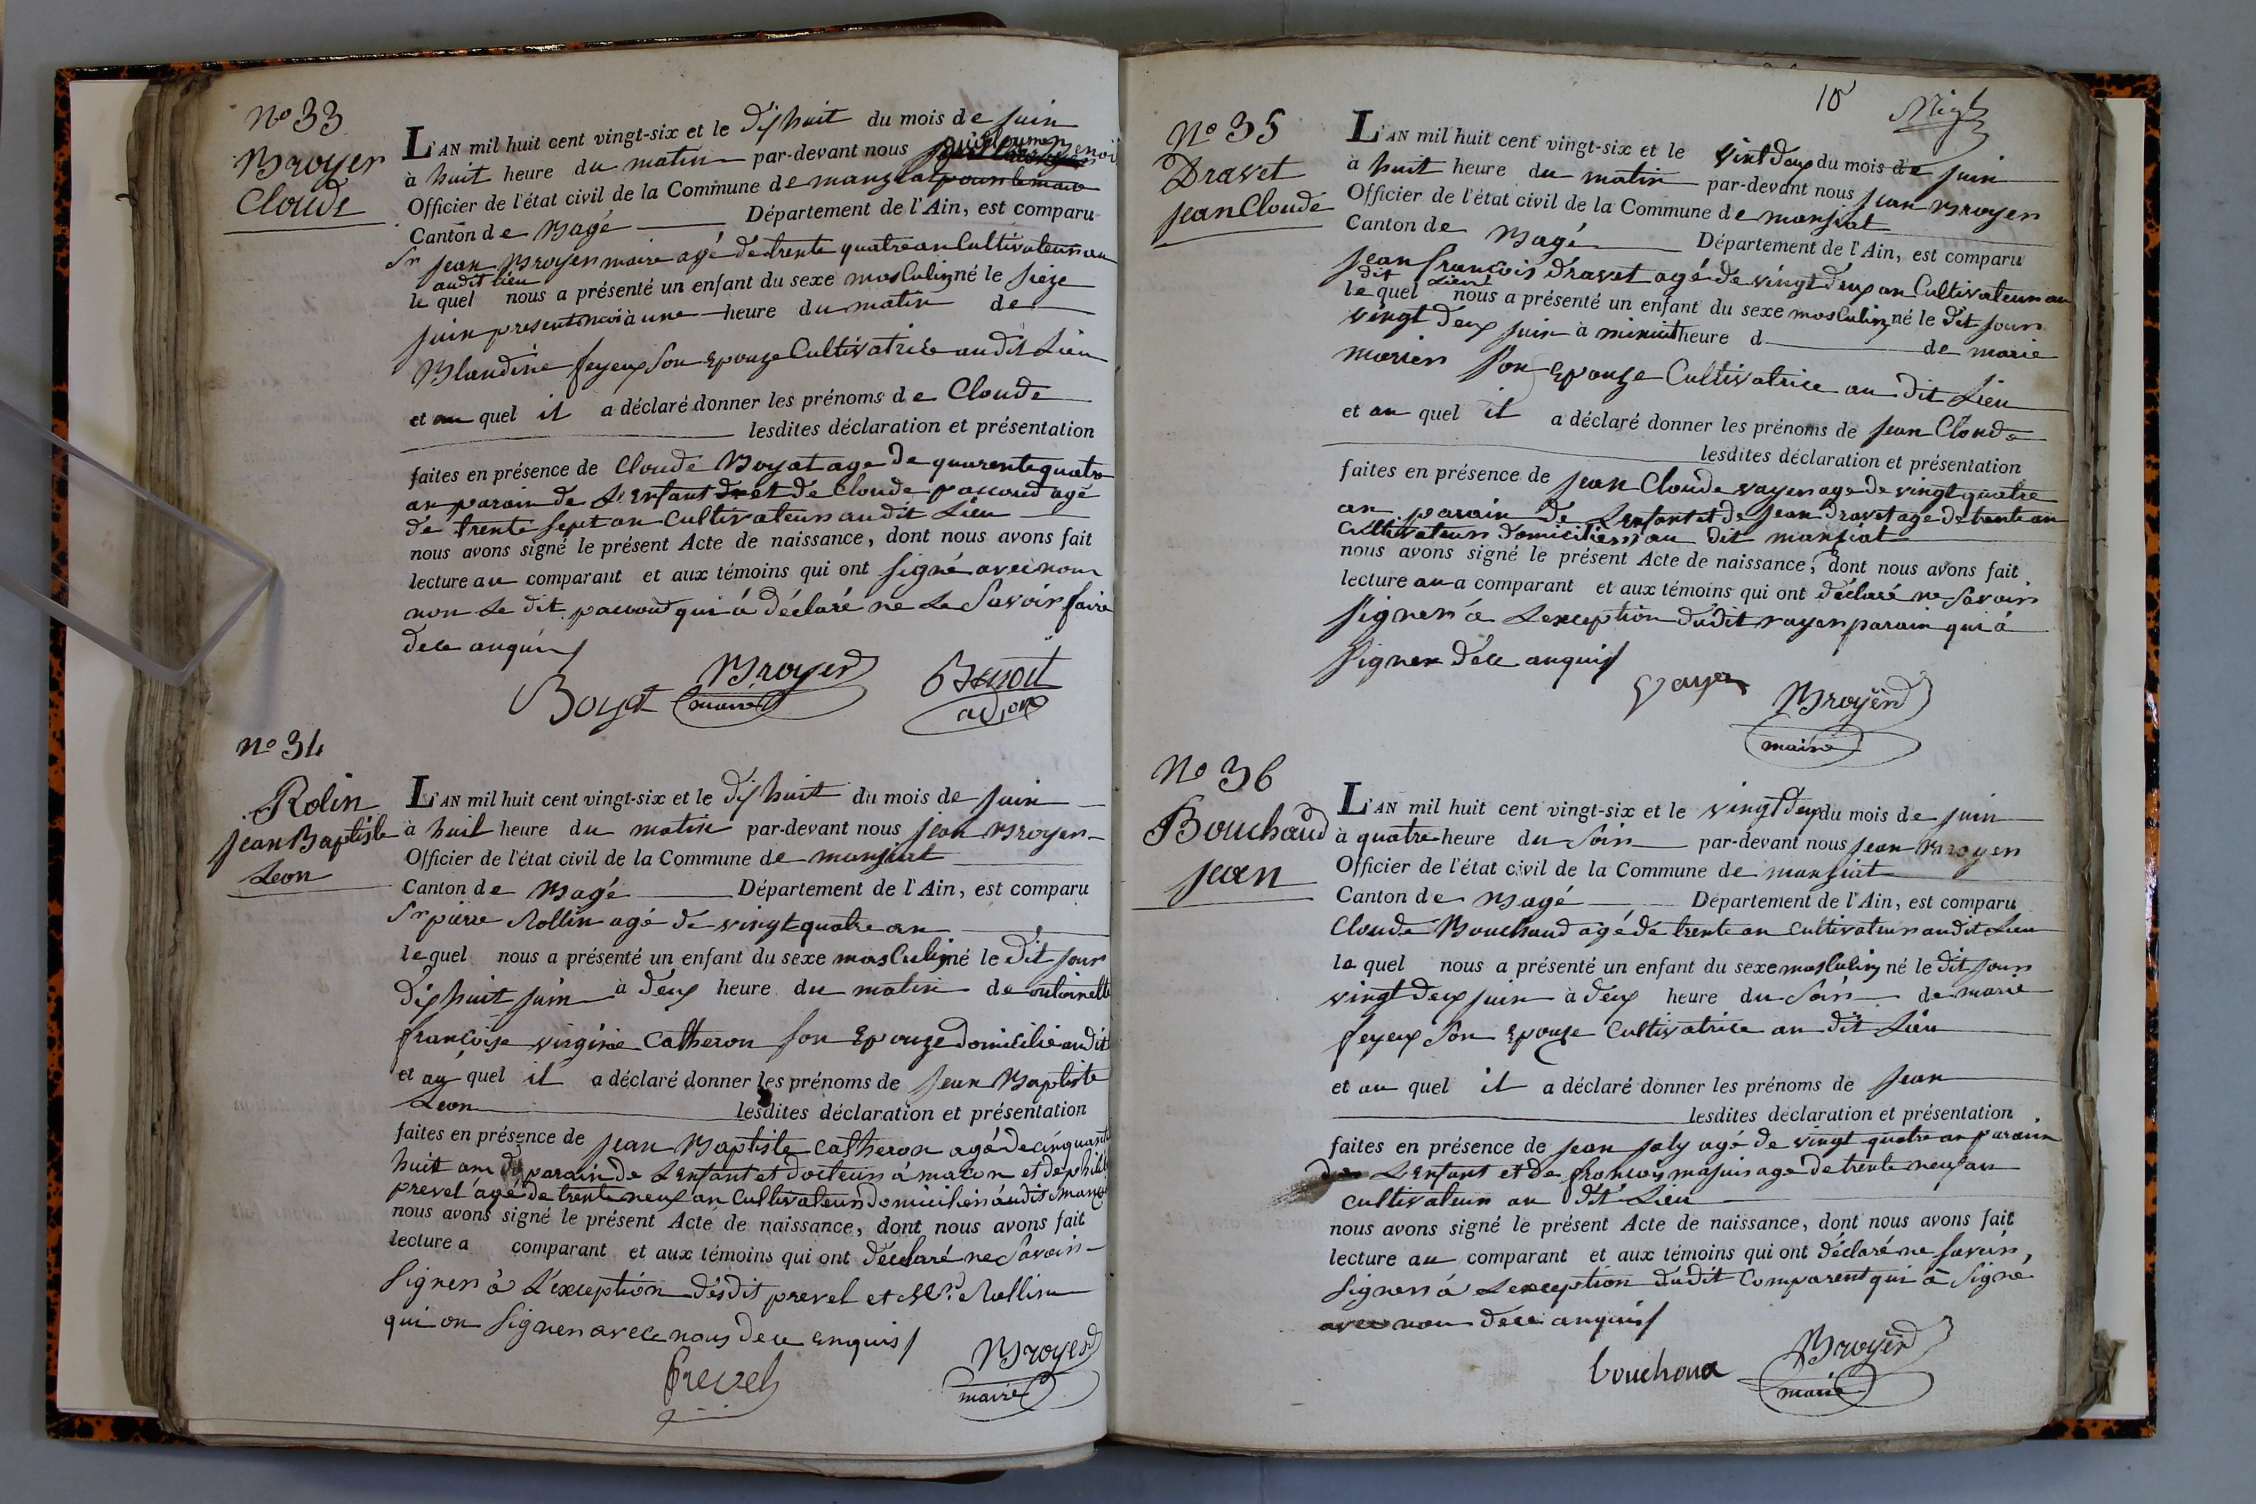 No 33
Broyer
Claude
L'AN mil huit cent vingt-six et le dixhuit du mois de juin
à huit heure du matin par-devant nous Benoit
Officier de l'état civil de la Commune de manziat pour le maire
Canton de Bagé Département de l'Ain, est comparu
Sr jean Broyer maire agé de trente quatre an Cultivateur au
audit lieu
le quel nous a présenté un enfant du sexe masculin né le seize
juin present mois à une heure du matin de
Blandine feyeux son Epouze Cultivatrice au dit Lieu
et au quel il a déclaré donner les prénoms de Claude
lesdites déclaration et présentation
faites en présence de Claude Boyat age de quarente quatre
an parain de L'Enfant et de Claude paccoud agé
de trente sept an cultivateur au dit Lieu
nous avons signé le présent Acte de naissance, dont nous avons fait
lecture au comparant et aux témoins qui ont signé avec nous
non Le dit paccoud qui à déclaré ne Le Savoir faire
de ce anquis
Boyat Broyer maire Benoit adjoint
No 34
Rolin
jean Baptiste
Leon
L'AN mil huit cent vingt-six et le dixhuit du mois de juin
à huit heure du matin par-devant nous jean Broyer
Officier de l'état civil de la Commune de manziat
Canton de Bagé Département de l'Ain, est comparu
Sr pierre Rollin agé de vingt quatre an
le quel nous a présenté un enfant du sexe masculin né le dit jour
dixhuit juin à deux heure du matin de antoinette
françoise virginie Catheron son Epouze domicilié au dit
et au quel il a déclaré donner les prénoms de jean Baptiste
Leon lesdites déclaration et présentation
faites en présence de jean Baptiste catheron agé de cinquante
huit an parain de L'Enfant et docteur à macon et de
prevel agé de trente neuf an cultivateur domicilier audit
nous avons signé le présent Acte de naissance, dont nous avons fait
lecture a comparant et aux témoins qui ont déclaré ne Savoir
Signer à L'exception desdit prevel et Mr. Rollin
qui on Signer avec nous de ce enquis
Prevel Broyer maire
10
No 35
Dravet
jean Claude
L'AN mil huit cent vingt-six et le vint deux du mois de juin
à huit heure du matin par-devant nous jean Broyer
Officier de l'état civil de la Commune de manziat
Canton de Bagé Département de l'Ain, est comparu
jean françois dravet agé de vingt deux an Cultivateur au
dit Lieu
le quel nous a présenté un enfant du sexe masculin né le dit jour
vingt deux juin à minuit heure d de marie
marier son Epouze Cultivatrice au dit Lieu
et au quel il a déclaré donner les prénoms de jean Claude
lesdites déclaration et présentation
faites en présence de jean Claude vayer age de vingt quatre
an parain de L'Enfant et de jean dravet age de trente an
cultivateur domicilier au dit manziat
nous avons signé le présent Acte de naissance, dont nous avons fait
lecture au a comparant et aux témoins qui ont déclaré ne savoir
Signer à L'exception dudit vayer parain qui à
Signer de ce anquis
Vayer Broyer
maire
No 36
Bouchaud
jean
L'AN mil huit cent vingt-six et le vingt deux du mois de juin
à quatre heure du Soir par-devant nous jean Broyer
Officier de l'état civil de la Commune de manziat
Canton de Bagé Département de l'Ain, est comparu
Claude Bouchaud agé de trente an cultivateur au dit Lieu
le quel nous a présenté un enfant du sexe masculin né le dit jour
vingt deux juin à deux heure du Soir de marie
feyeux son Epouze cultivatrice au dit Lieu
et au quel il a déclaré donner les prénoms de jean
lesdites déclaration et présentation
faites en présence de jean joly agé de vingt quatre an parain
de L'Enfant et de francois age de trente neuf an
cultivateur au dit Lieu
nous avons signé le présent Acte de naissance, dont nous avons fait
lecture au comparant et aux témoins qui ont déclaré ne savoir,
Signer à L'exception dudit comparent qui à Signé
avec nou de ce anquis
bouchoux Broyer
maire